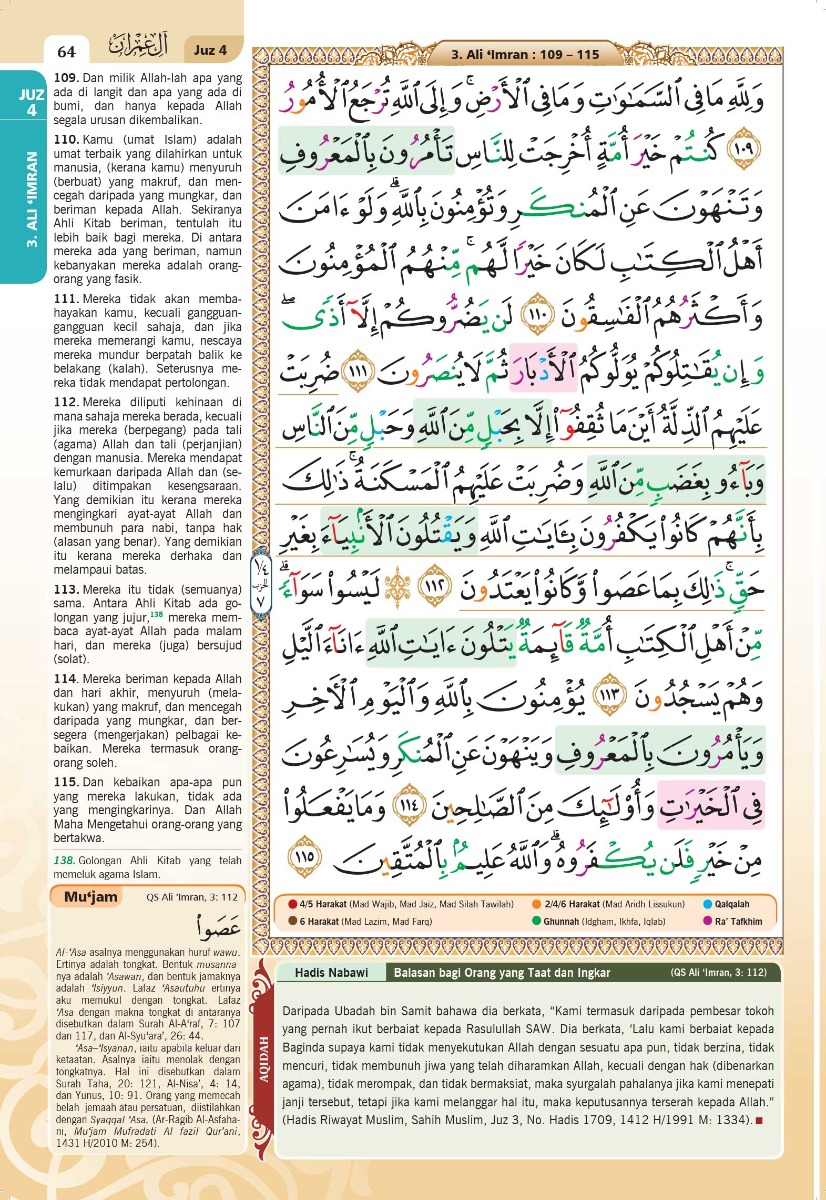 64
آل عمران
Juz 4
3. Ali ‘Imran : 109 – 115
JUZ
4
3. ALI ‘IMRAN
109. Dan milik Allah-lah apa yang
ada di langit dan apa yang ada di
bumi, dan hanya kepada Allah
segala urusan dikembalikan.
110. Kamu (umat Islam) adalah
umat terbaik yang dilahirkan untuk
manusia, (kerana kamu) menyuruh
(berbuat) yang makruf, dan men-
cegah daripada yang mungkar, dan
beriman kepada Allah. Sekiranya
Ahli Kitab beriman, tentulah itu
lebih baik bagi mereka. Di antara
mereka ada yang beriman, namun
kebanyakan mereka adalah orang-
orang yang fasik.
111. Mereka tidak akan memba-
hayakan kamu, kecuali gangguan-
gangguan kecil sahaja, dan jika
mereka memerangi kamu, nescaya
mereka mundur berpatah balik ke
belakang (kalah). Seterusnya me-
reka tidak mendapat pertolongan.
112. Mereka diliputi kehinaan di
mana sahaja mereka berada, kecuali
jika mereka (berpegang) pada tali
(agama) Allah dan tali (perjanjian)
dengan manusia. Mereka mendapat
kemurkaan daripada Allah dan (se-
lalu) ditimpakan kesengsaraan.
Yang demikian itu kerana mereka
mengingkari ayat-ayat Allah dan
membunuh para nabi, tanpa hak
(alasan yang benar). Yang demikian
itu kerana mereka derhaka dan
melampaui batas.
113. Mereka itu tidak (semuanya)
sama. Antara Ahli Kitab ada go-
longan yang jujur,138 mereka mem-
baca ayat-ayat Allah pada malam
hari, dan mereka (juga) bersujud
(solat).
114. Mereka beriman kepada Allah
dan hari akhir, menyuruh (mela-
kukan) yang makruf, dan mencegah
daripada yang mungkar, dan ber-
segera (mengerjakan) pelbagai ke-
baikan. Mereka termasuk orang-
orang soleh.
115. Dan kebaikan apa-apa pun
yang mereka lakukan, tidak ada
yang mengingkarinya. Dan Allah
Maha Mengetahui orang-orang yang
bertakwa.
138. Golongan Ahli Kitab yang telah
memeluk agama Islam.
Mu‘jam QS Ali ‘Imran, 3: 112
عَصَوا۟
Al-‘Asa asalnya menggunakan huruf wawu.
Ertinya adalah tongkat. Bentuk musanna-
nya adalah ‘Asawan, dan bentuk jamaknya
adalah ‘Isiyyun. Lafaz ‘Asautuhu ertinya
aku memukul dengan tongkat. Lafaz
‘Asa dengan makna tongkat di antaranya
disebutkan dalam Surah Al-A‘raf, 7: 107
dan 117, dan Al-Syu‘ara’, 26: 44.
‘Asa–‘Isyanan, iaitu apabila keluar dari
ketaatan. Asalnya iaitu menolak dengan
tongkatnya. Hal ini disebutkan dalam
Surah Taha, 20: 121, Al-Nisa’, 4: 14,
dan Yunus, 10: 91. Orang yang memecah
belah jemaah atau persatuan, diistilahkan
dengan Syaqqal ‘Asa. (Ar-Ragib Al-Asfaha-
ni, Mu‘jam Mufradati Al fazil Qur’ani,
1431 H/2010 M: 254).
وَلِلَّهِ مَا فِى ٱلسَّمَـٰوَٰتِ وَمَا فِى ٱلْأَرْضِ ۚ وَإِلَى ٱللَّهِ تُرْجَعُ ٱلْأُمُورُ
١٠٩ كُنتُمْ خَيْرَ أُمَّةٍ أُخْرِجَتْ لِلنَّاسِ تَأْمُرُونَ بِٱلْمَعْرُوفِ
وَتَنْهَوْنَ عَنِ ٱلْمُنكَرِ وَتُؤْمِنُونَ بِٱللَّهِ ۗ وَلَوْ ءَامَنَ
أَهْلُ ٱلْكِتَـٰبِ لَكَانَ خَيْرًا لَّهُم ۚ مِّنْهُمُ ٱلْمُؤْمِنُونَ
وَأَكْثَرُهُمُ ٱلْفَـٰسِقُونَ ١١٠ لَن يَضُرُّوكُمْ إِلَّآ أَذًى ۖ
وَإِن يُقَـٰتِلُوكُمْ يُوَلُّوكُمُ ٱلْأَدْبَارَ ثُمَّ لَا يُنصَرُونَ ١١١ ضُرِبَتْ
عَلَيْهِمُ ٱلذِّلَّةُ أَيْنَ مَا ثُقِفُوٓا۟ إِلَّا بِحَبْلٍ مِّنَ ٱللَّهِ وَحَبْلٍ مِّنَ ٱلنَّاسِ
وَبَآءُو بِغَضَبٍ مِّنَ ٱللَّهِ وَضُرِبَتْ عَلَيْهِمُ ٱلْمَسْكَنَةُ ۚ ذَٰلِكَ
بِأَنَّهُمْ كَانُوا۟ يَكْفُرُونَ بِـَٔايَـٰتِ ٱللَّهِ وَيَقْتُلُونَ ٱلْأَنۢبِيَآءَ بِغَيْرِ
حَقٍّ ۚ ذَٰلِكَ بِمَا عَصَوا۟ وَّكَانُوا۟ يَعْتَدُونَ ١١٢ لَيْسُوا۟ سَوَآءً ۗ
مِّنْ أَهْلِ ٱلْكِتَـٰبِ أُمَّةٌ قَآئِمَةٌ يَتْلُونَ ءَايَـٰتِ ٱللَّهِ ءَانَآءَ ٱلَّيْلِ
وَهُمْ يَسْجُدُونَ ١١٣ يُؤْمِنُونَ بِٱللَّهِ وَٱلْيَوْمِ ٱلْـَٔاخِرِ
وَيَأْمُرُونَ بِٱلْمَعْرُوفِ وَيَنْهَوْنَ عَنِ ٱلْمُنكَرِ وَيُسَـٰرِعُونَ
فِى ٱلْخَيْرَٰتِ وَأُو۟لَـٰٓئِكَ مِنَ ٱلصَّـٰلِحِينَ ١١٤ وَمَا يَفْعَلُوا۟
مِنْ خَيْرٍ فَلَن يُكْفَرُوهُ ۗ وَٱللَّهُ عَلِيمٌۢ بِٱلْمُتَّقِينَ ١١٥
١/٤
الحزب
٧
4/5 Harakat (Mad Wajib, Mad Jaiz, Mad Silah Tawilah) 2/4/6 Harakat (Mad Aridh Lissukun) Qalqalah
6 Harakat (Mad Lazim, Mad Farq) Ghunnah (Idgham, Ikhfa, Iqlab) Ra’ Tafkhim
AQIDAH
Hadis Nabawi Balasan bagi Orang yang Taat dan Ingkar (QS Ali ‘Imran, 3: 112)
Daripada Ubadah bin Samit bahawa dia berkata, “Kami termasuk daripada pembesar tokoh
yang pernah ikut berbaiat kepada Rasulullah SAW. Dia berkata, ‘Lalu kami berbaiat kepada
Baginda supaya kami tidak menyekutukan Allah dengan sesuatu apa pun, tidak berzina, tidak
mencuri, tidak membunuh jiwa yang telah diharamkan Allah, kecuali dengan hak (dibenarkan
agama), tidak merompak, dan tidak bermaksiat, maka syurgalah pahalanya jika kami menepati
janji tersebut, tetapi jika kami melanggar hal itu, maka keputusannya terserah kepada Allah.”
(Hadis Riwayat Muslim, Sahih Muslim, Juz 3, No. Hadis 1709, 1412 H/1991 M: 1334).